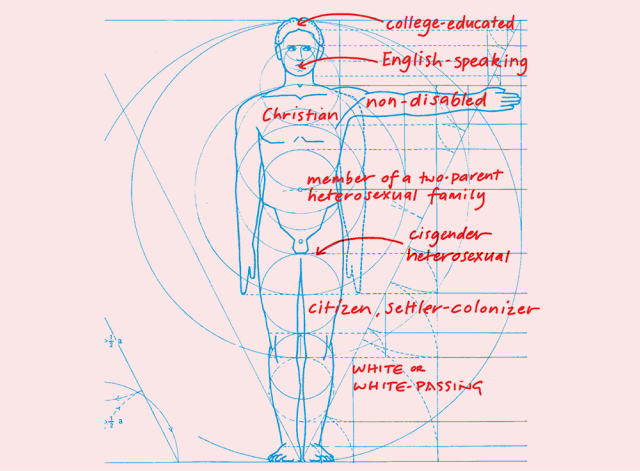 college-educated
English-speaking
non-disabled
Christian
member of a two-parent
heterosexual family
cisgender
heterosexual
citizen, settler-colonizer
WHITE OR
WHITE-PASSING
a
a